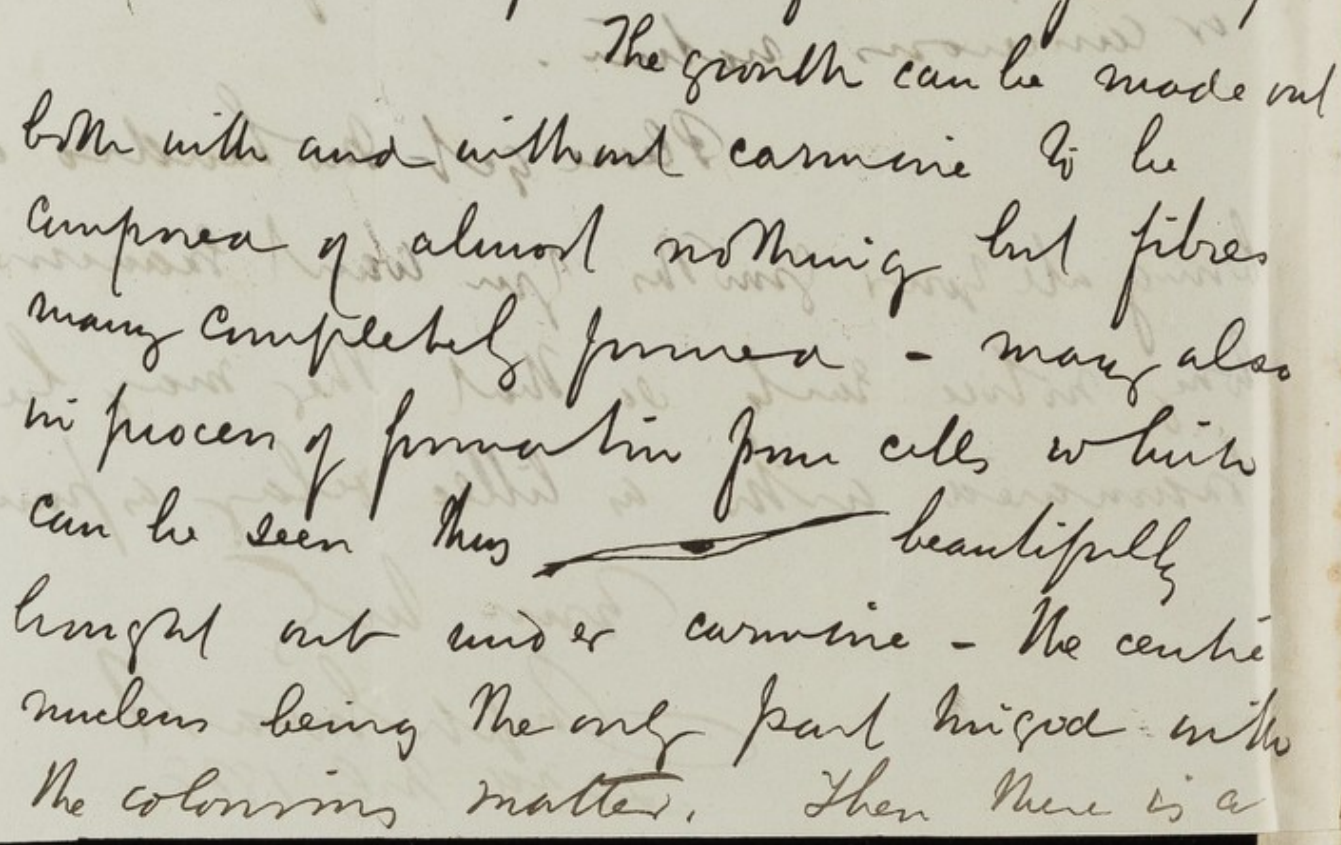 The growth can be made out
both with and without carmine to be
composed of almost nothing but fibres
many completely formed - many also
in process of formation from cells which
can be seen thus beautifully
brought out under carmine - the centre
nucleus being the only part tinged with
the colouring matter. Then there is a